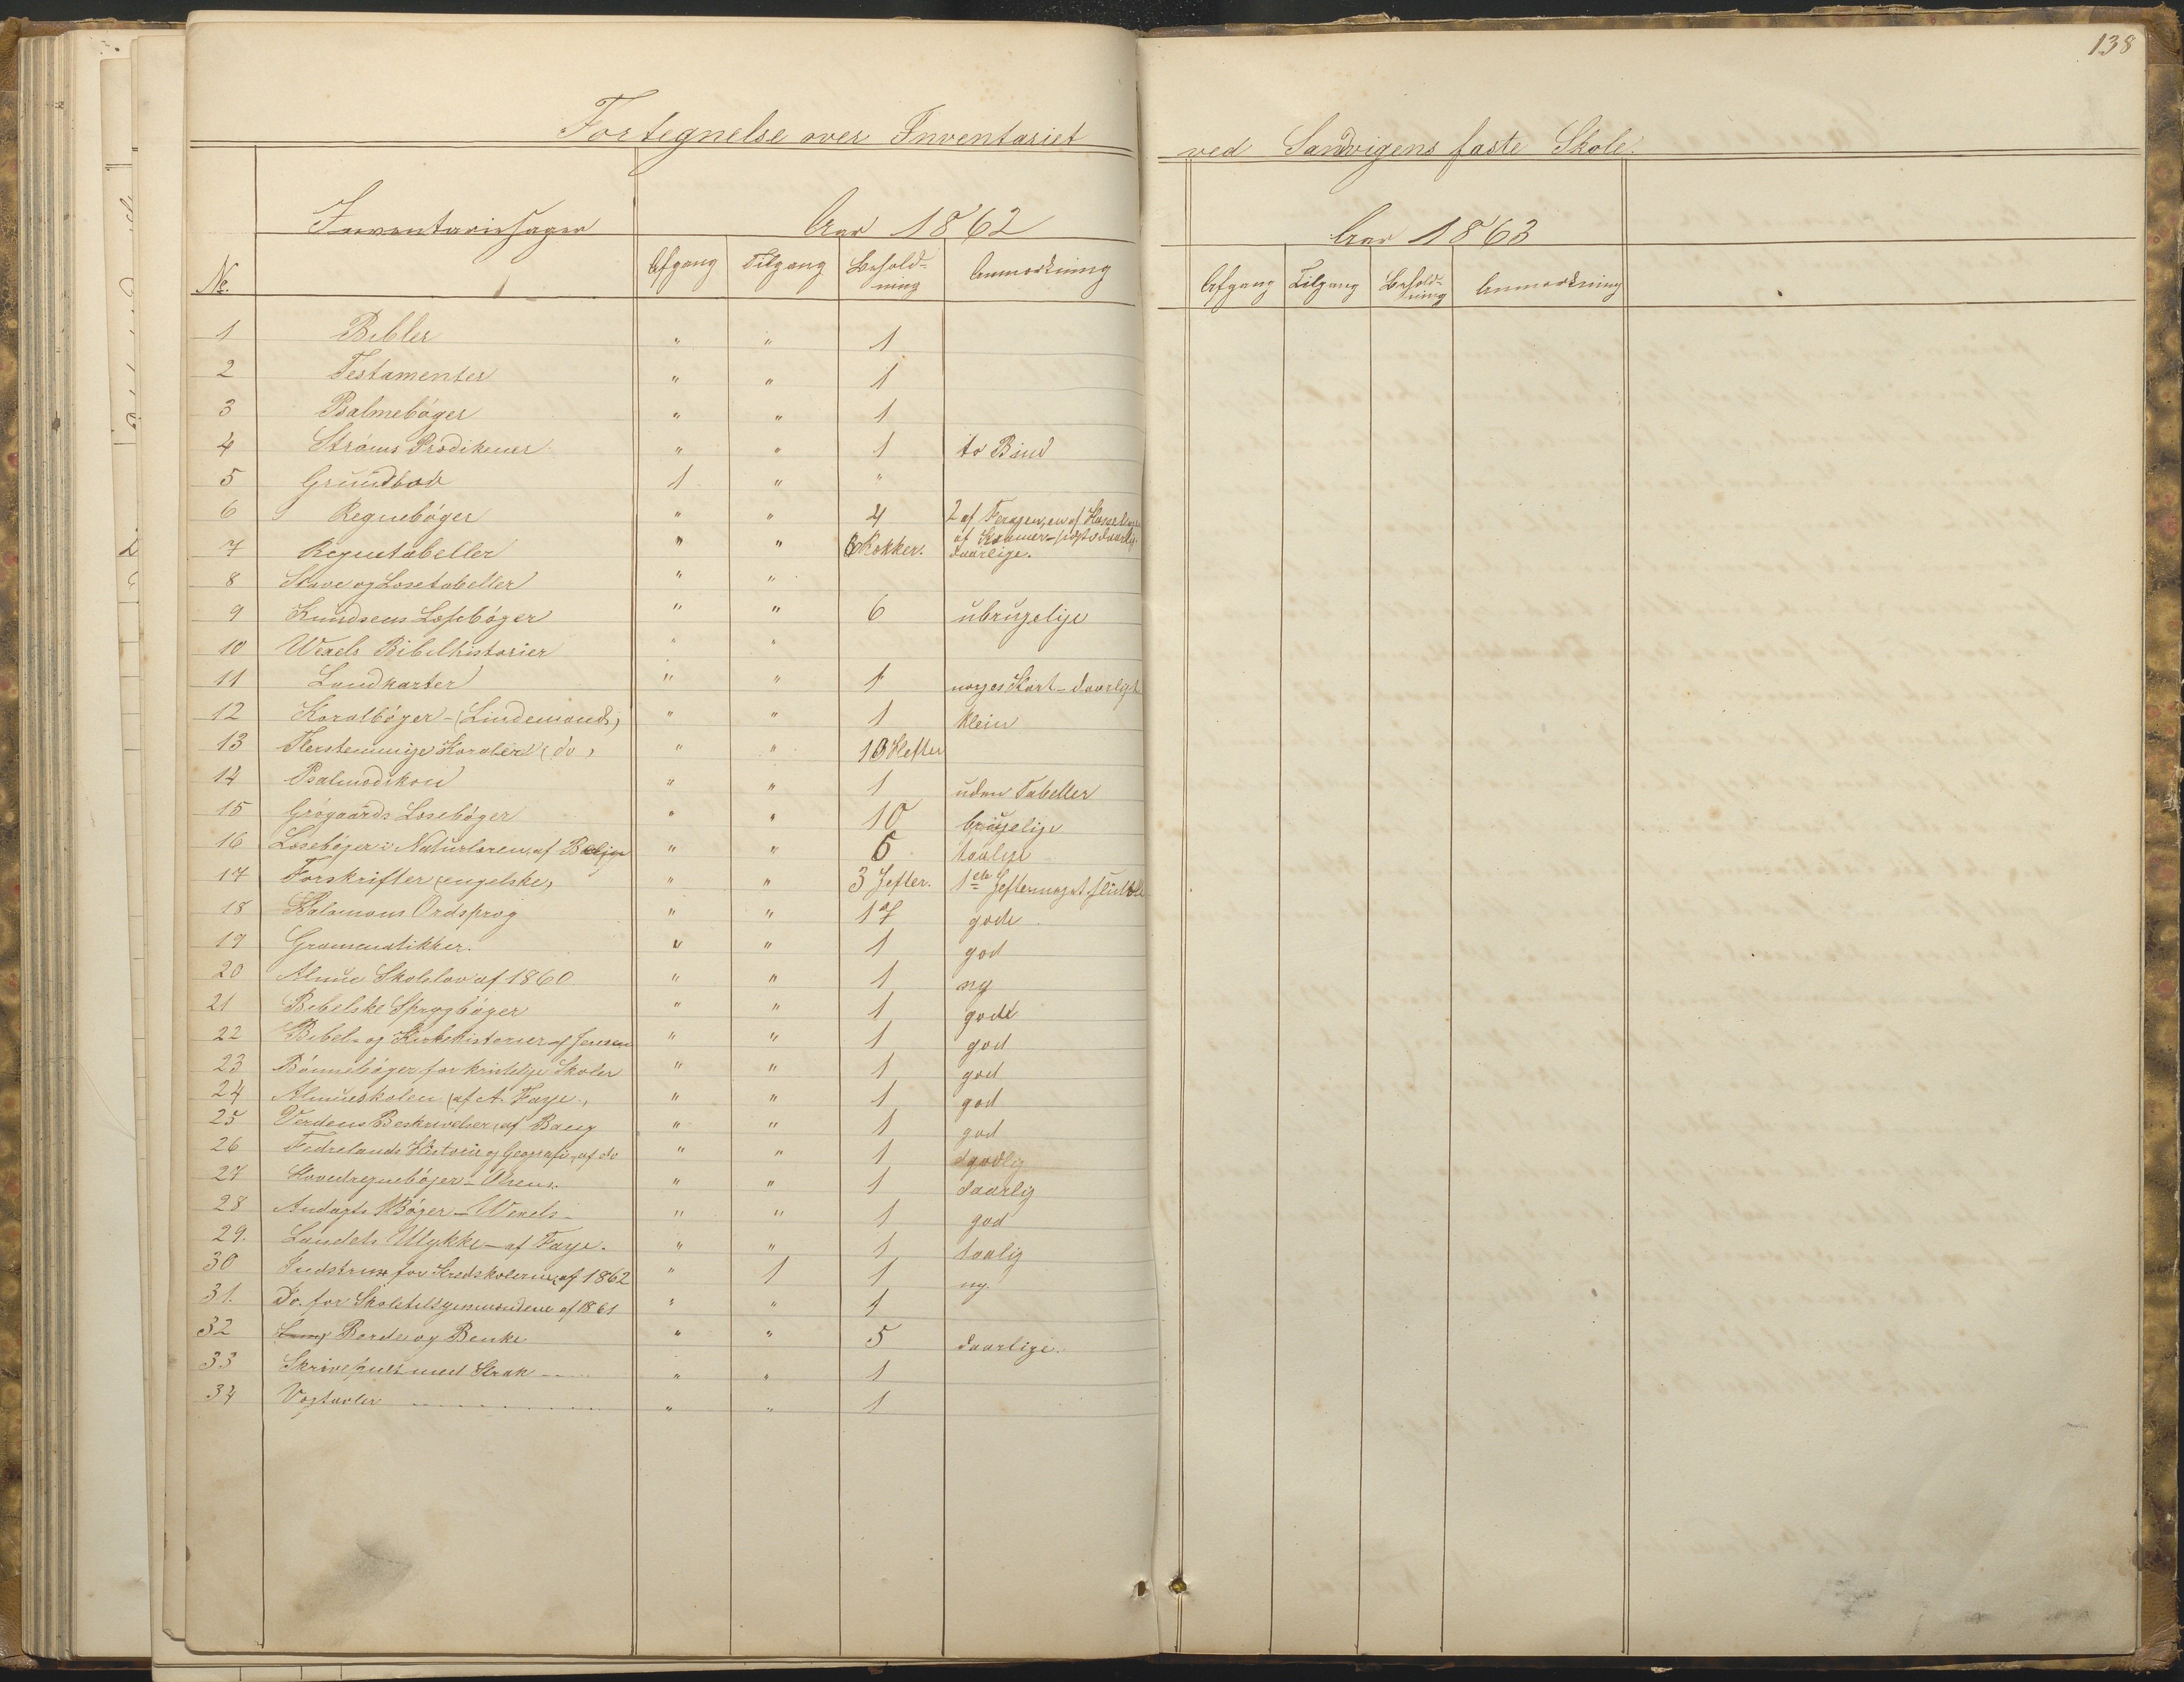 138
Fortegnelse over Inventariet ved Sandvigens faste Skole.
Inventariesager Aar 1862 Aar 1863
No. Afgang Tilgang Behold-ning Anmærkning Afgang Tilgang Behold-ning Anmærkning
1 Bibler " " 1
2 Testamenter " " 1
3 Psalmebøger " " 1
4 Strøms Prædikener " " 1 to Bind
5 Grundlov 1 " "
6 Regnebøger " " 4 2 af Feragen, en af
7 Regnetabeller " " 6 Pokker. daarlige.
8 Stave og Læsetabeller " "
9 Knudsens Læsebøger " " 6 ubrugelige
10 Wexels Bibelhistorier " "
11 Landkarter " " 1 norges Kart - daarligt
12 Koralbøger - (Lindemands) " " 1 klein
13 Flerstemmige Koraler (do) " " 10 Hefter
14 Psalmodikon " " 1 uden Tabeller
15 Grøgaards Læsebøger " " 10 brugelige
16 Læsebøger i Naturlæren, af " " 5 taalige
17 Forskrifter (engelske) " " 3 Hefter. 1ste Hefte meget
18 Salomons Ordsprog " " 17 gode
19 Grammatikker. " " 1 god
20 Almue Skolelov af 1860 " " 1 ny
21 Bibelske Sprogbøger " " 1 god
22 Bibel- og Kirkehistorier af Jensen " " 1 god
23 Bønnebøger for kristelige Skoler " " 1 god
24 Almueskolen (af A. Faye.) " " 1 god
25 Verdens Beskrivelser, af Bang " " 1 god
26 Fedrelands Historie og Geografi, af do " " 1
27 Hovedregnebøger - Olsens. " " 1 daarlig
28 Andagts Bøger - Wexels - " " 1 god
29. Landets Ulykke - af Faye. " " 1 taalig
30 Indstrux for Kredskolerne, af 1862 " 1 1 ny.
31. Do. for Skoletilsynsmændene af 1861 " " 1
32 Borde og Benke " " 5 daarlige.
33 Skrivepult med Krak " " 1
34 Vægtavler " " 1